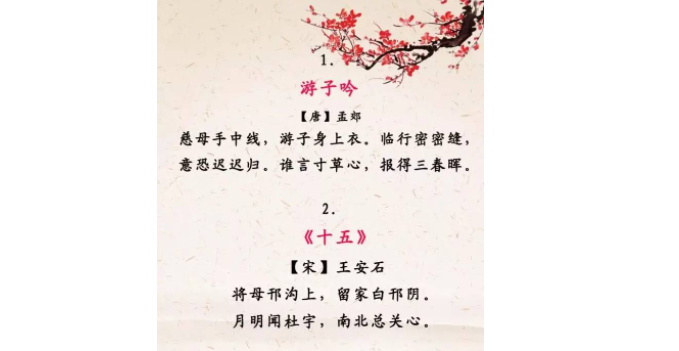 1.
游子吟
【唐】孟郊
慈母手中线，游子身上衣。临行密密缝，
意恐迟迟归。谁言寸草心，报得三春晖。
2.
《十五》
【宋】王安石
将母邗沟上，留家白邗阴。
月明闻杜宇，南北总关心。